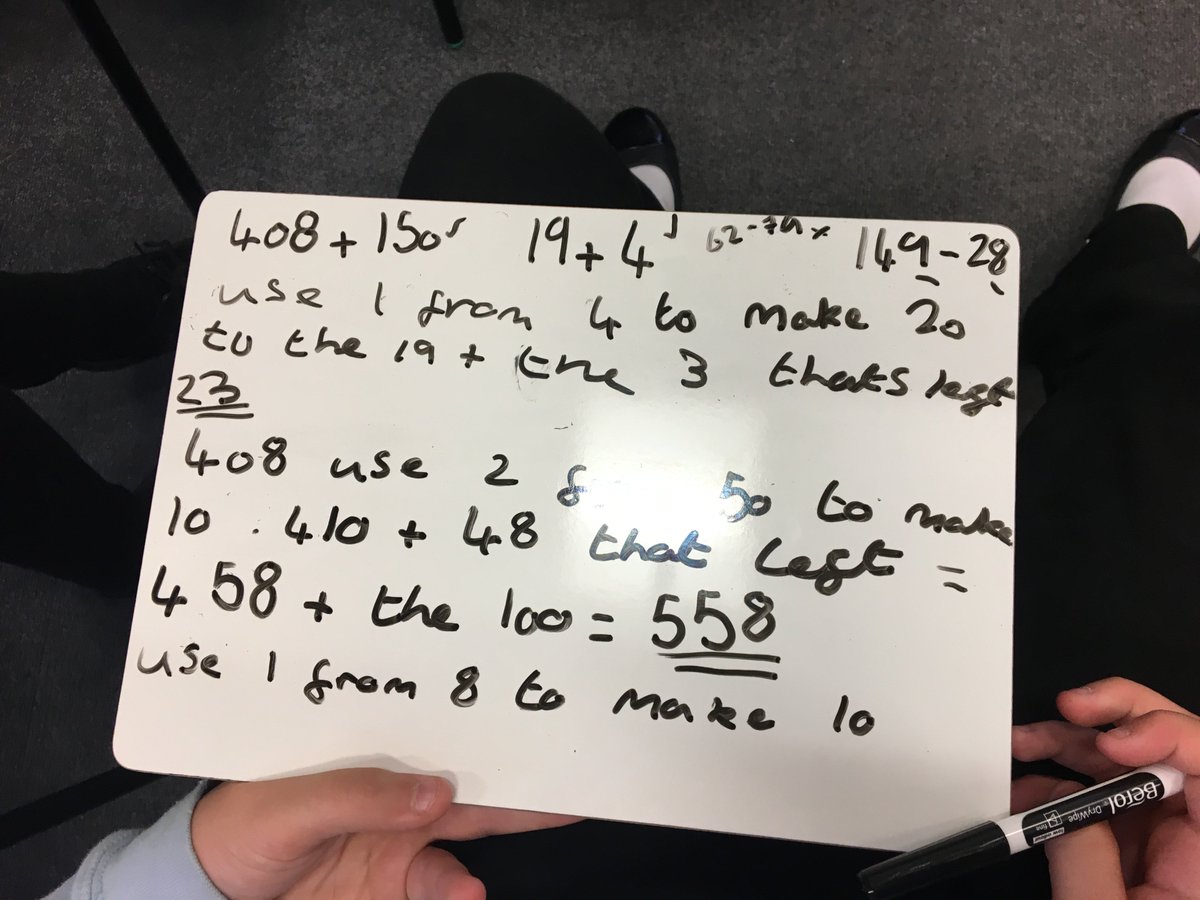 408 + 150 ✓ 19 + 4 ✓ 62 - 79 × 149 - 28
use 1 from 4 to make 20
to the 19 + the 3 thats left
23
408 use 2 50 to make
10 . 410 + 48 that left =
458 + the 100 = 558
use 1 from 8 to make 10
Berol DryWipe
fine